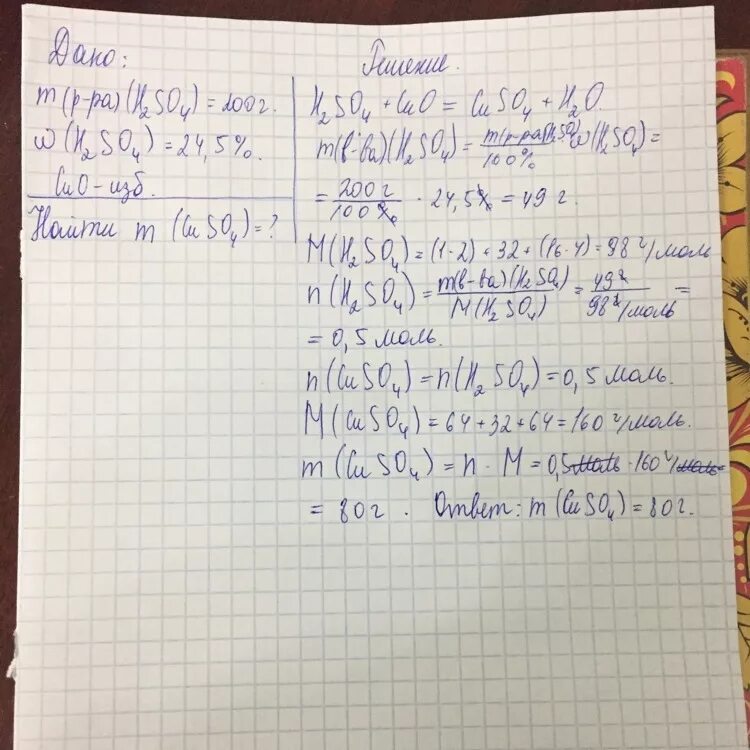 Дано:
m(р-ра)(H₂SO₄)=200г.
ω(H₂SO₄)=24,5%.
CuO-изб.
Найти m (CuSO₄)=?
Решение.
H₂SO₄ + CuO = CuSO₄ + H₂O.
m(в-ва)(H₂SO₄) = m(р-ра)(H₂SO₄)/100% · ω(H₂SO₄) =
= 200г/100% · 24,5% = 49 г.
M(H₂SO₄) = (1·2) + 32 + (16·4) = 98 г/моль
n(H₂SO₄) = m(в-ва)(H₂SO₄)/M(H₂SO₄) = 49г/98г/моль =
= 0,5 моль.
n(CuSO₄) = n(H₂SO₄) = 0,5 моль.
M(CuSO₄) = 64+32+64 = 160 г/моль.
m(CuSO₄) = n · M = 0,5моль · 160 г/моль =
= 80г. Ответ: m(CuSO₄) = 80г.